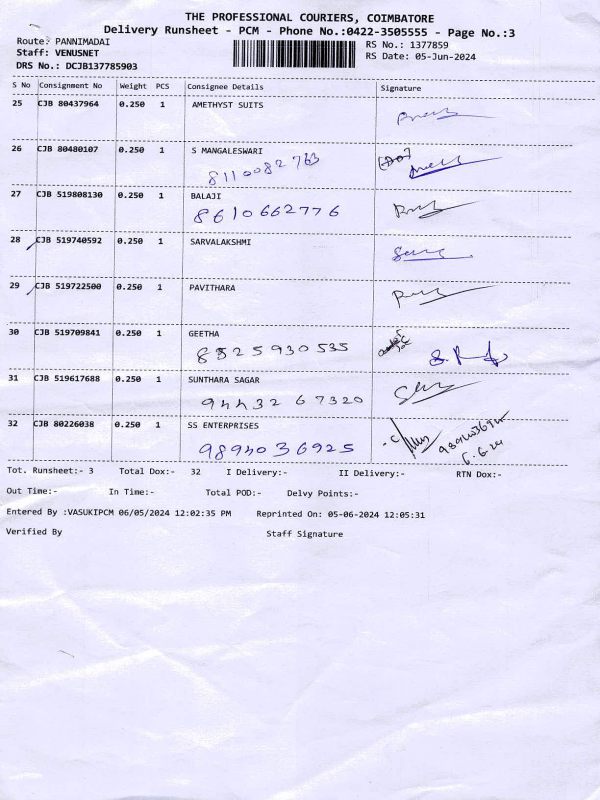 THE PROFESSIONAL COURIERS, COIMBATORE
Delivery Runsheet - PCM - Phone No.:0422-3505555 - Page No.:3
Route: PANNIMADAI
RS No.: 1377859
Staff: VENUSNET
RS Date: 05-Jun-2024
DRS No.: DCJB137785903
S No Consignment No Weight PCS Consignee Details Signature
25 CJB 80437964 0.250 1 AMETHYST SUITS
26 CJB 80480107 0.250 1 S MANGALESWARI
8110082763
27 CJB 519808130 0.250 1 BALAJI
8610662776
28 CJB 519740592 0.250 1 SARVALAKSHMI
29 CJB 519722500 0.250 1 PAVITHARA
30 CJB 519709841 0.250 1 GEETHA
8525930535
31 CJB 519617688 0.250 1 SUNTHARA SAGAR
9443267320
32 CJB 80226038 0.250 1 SS ENTERPRISES
9894036925
Tot. Runsheet:- 3 Total Dox:- 32 I Delivery:- II Delivery:- RTN Dox:-
Out Time:- In Time:- Total POD:- Delvy Points:-
Entered By :VASUKIPCM 06/05/2024 12:02:35 PM Reprinted On: 05-06-2024 12:05:31
Verified By Staff Signature